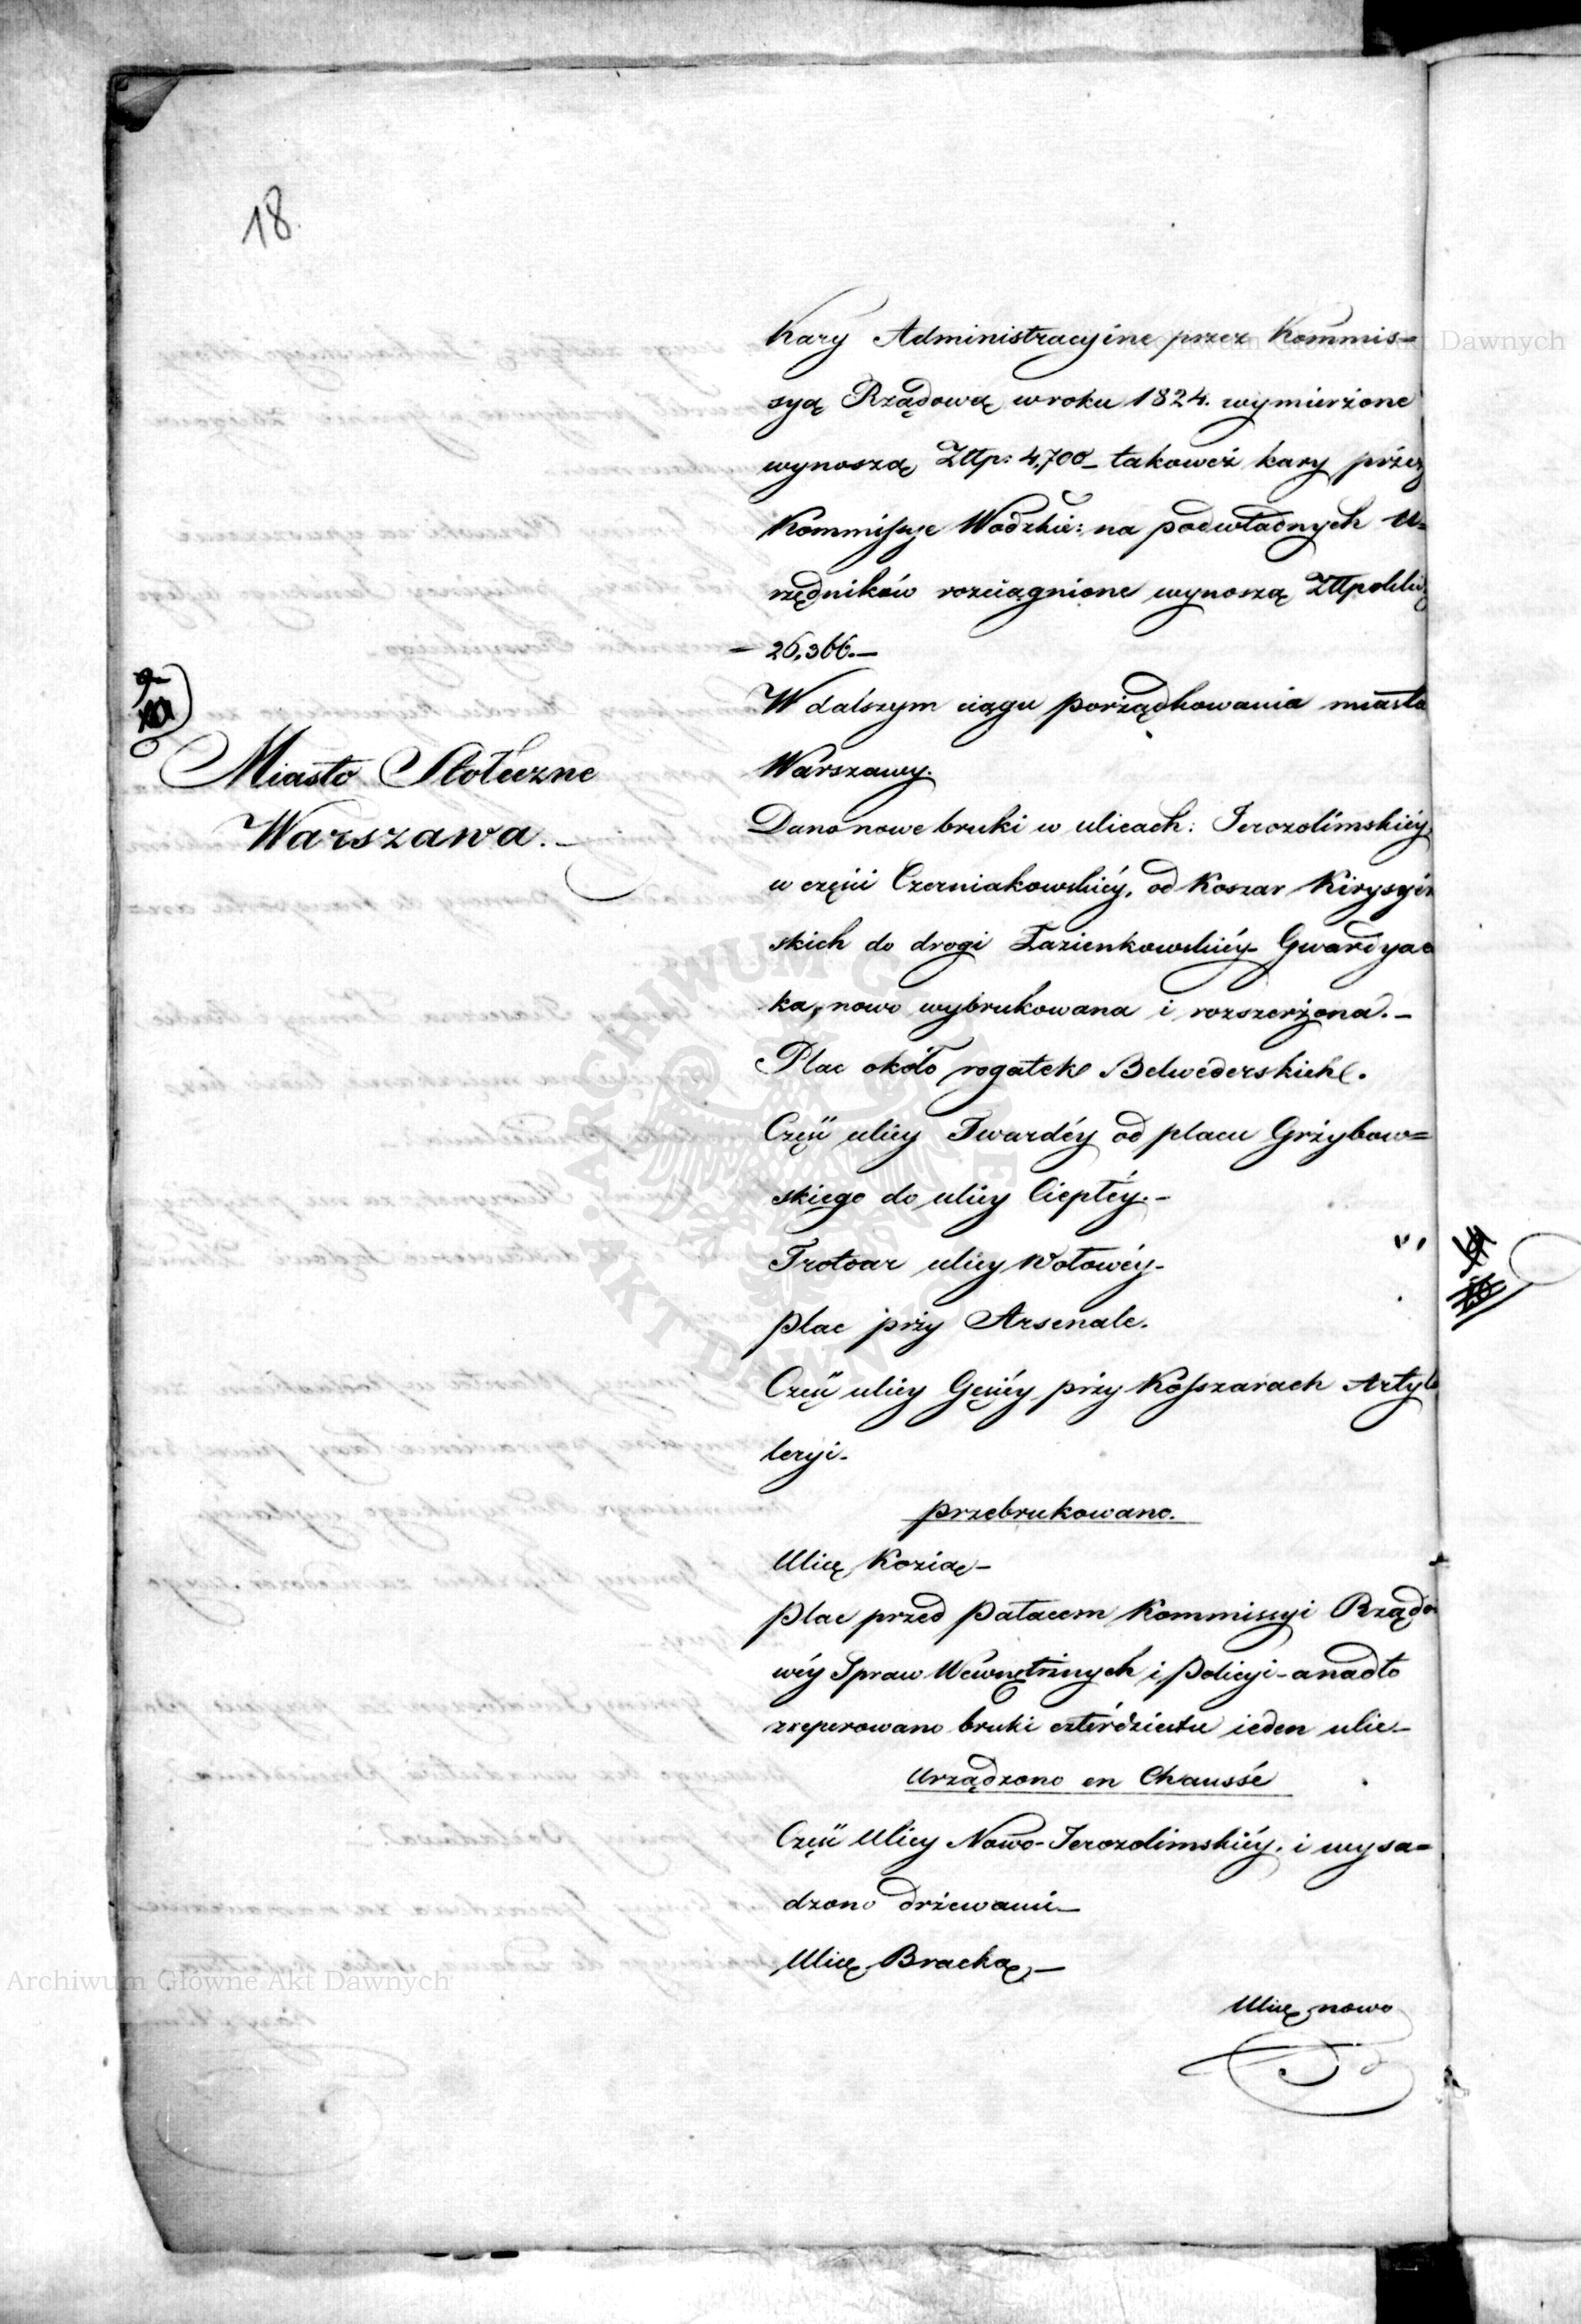 18.
Kary Administracyine przez Kommis=
syą Rządową w roku 1824. wymierżone
wynoszą Złtp: 4,700_ takoweż kary przez
Kommissye Wodzkie: na podwładnych U=
rzędników rozciągnione wynoszą Złtpolsk
— 26,366.—
W dalszym ciągu porządkowania miasta
Warszawy.
Miasto Stołeczne
Warszawa._
Dano nowe bruki w ulicach: Jerozolimskiéy,
w części Czerniakowskiéy, od Koszar Kirysyer
skich do drogi Łazienkowskiéy_ Gwardyac
ka, nowo wybrukowana i rozszerżona._
Plac około rogatek Belwederskich.
Część ulicy Twardéy od placu Grżybow=
skiego do ulicy Ciepłéy._
Trotoar ulicy Wołowéy_
plac prży Arsenale.
Część ulicy Gęsiéy prży Kosszarach Artyl
leryi_
przebrukowano.
Ulicę Kozią_
plac przed Pałacem Kommissyi Rządo
wéy Spraw Wewnętrżnych i Policyi_ a nadto
zreperowano bruki czterdziestu ieden ulic_
Urządzono en Chaussée
Część Ulicy Nowo-Jerozolimskiéy, i wysa=
dzono drżewami_
Ulicę Bracką,_
Ulicę nowo
Archiwum Główne Akt Dawnych
Archiwum Główne Akt Dawnych
ARCHIWUM GŁÓWNE AKT DAWNYCH